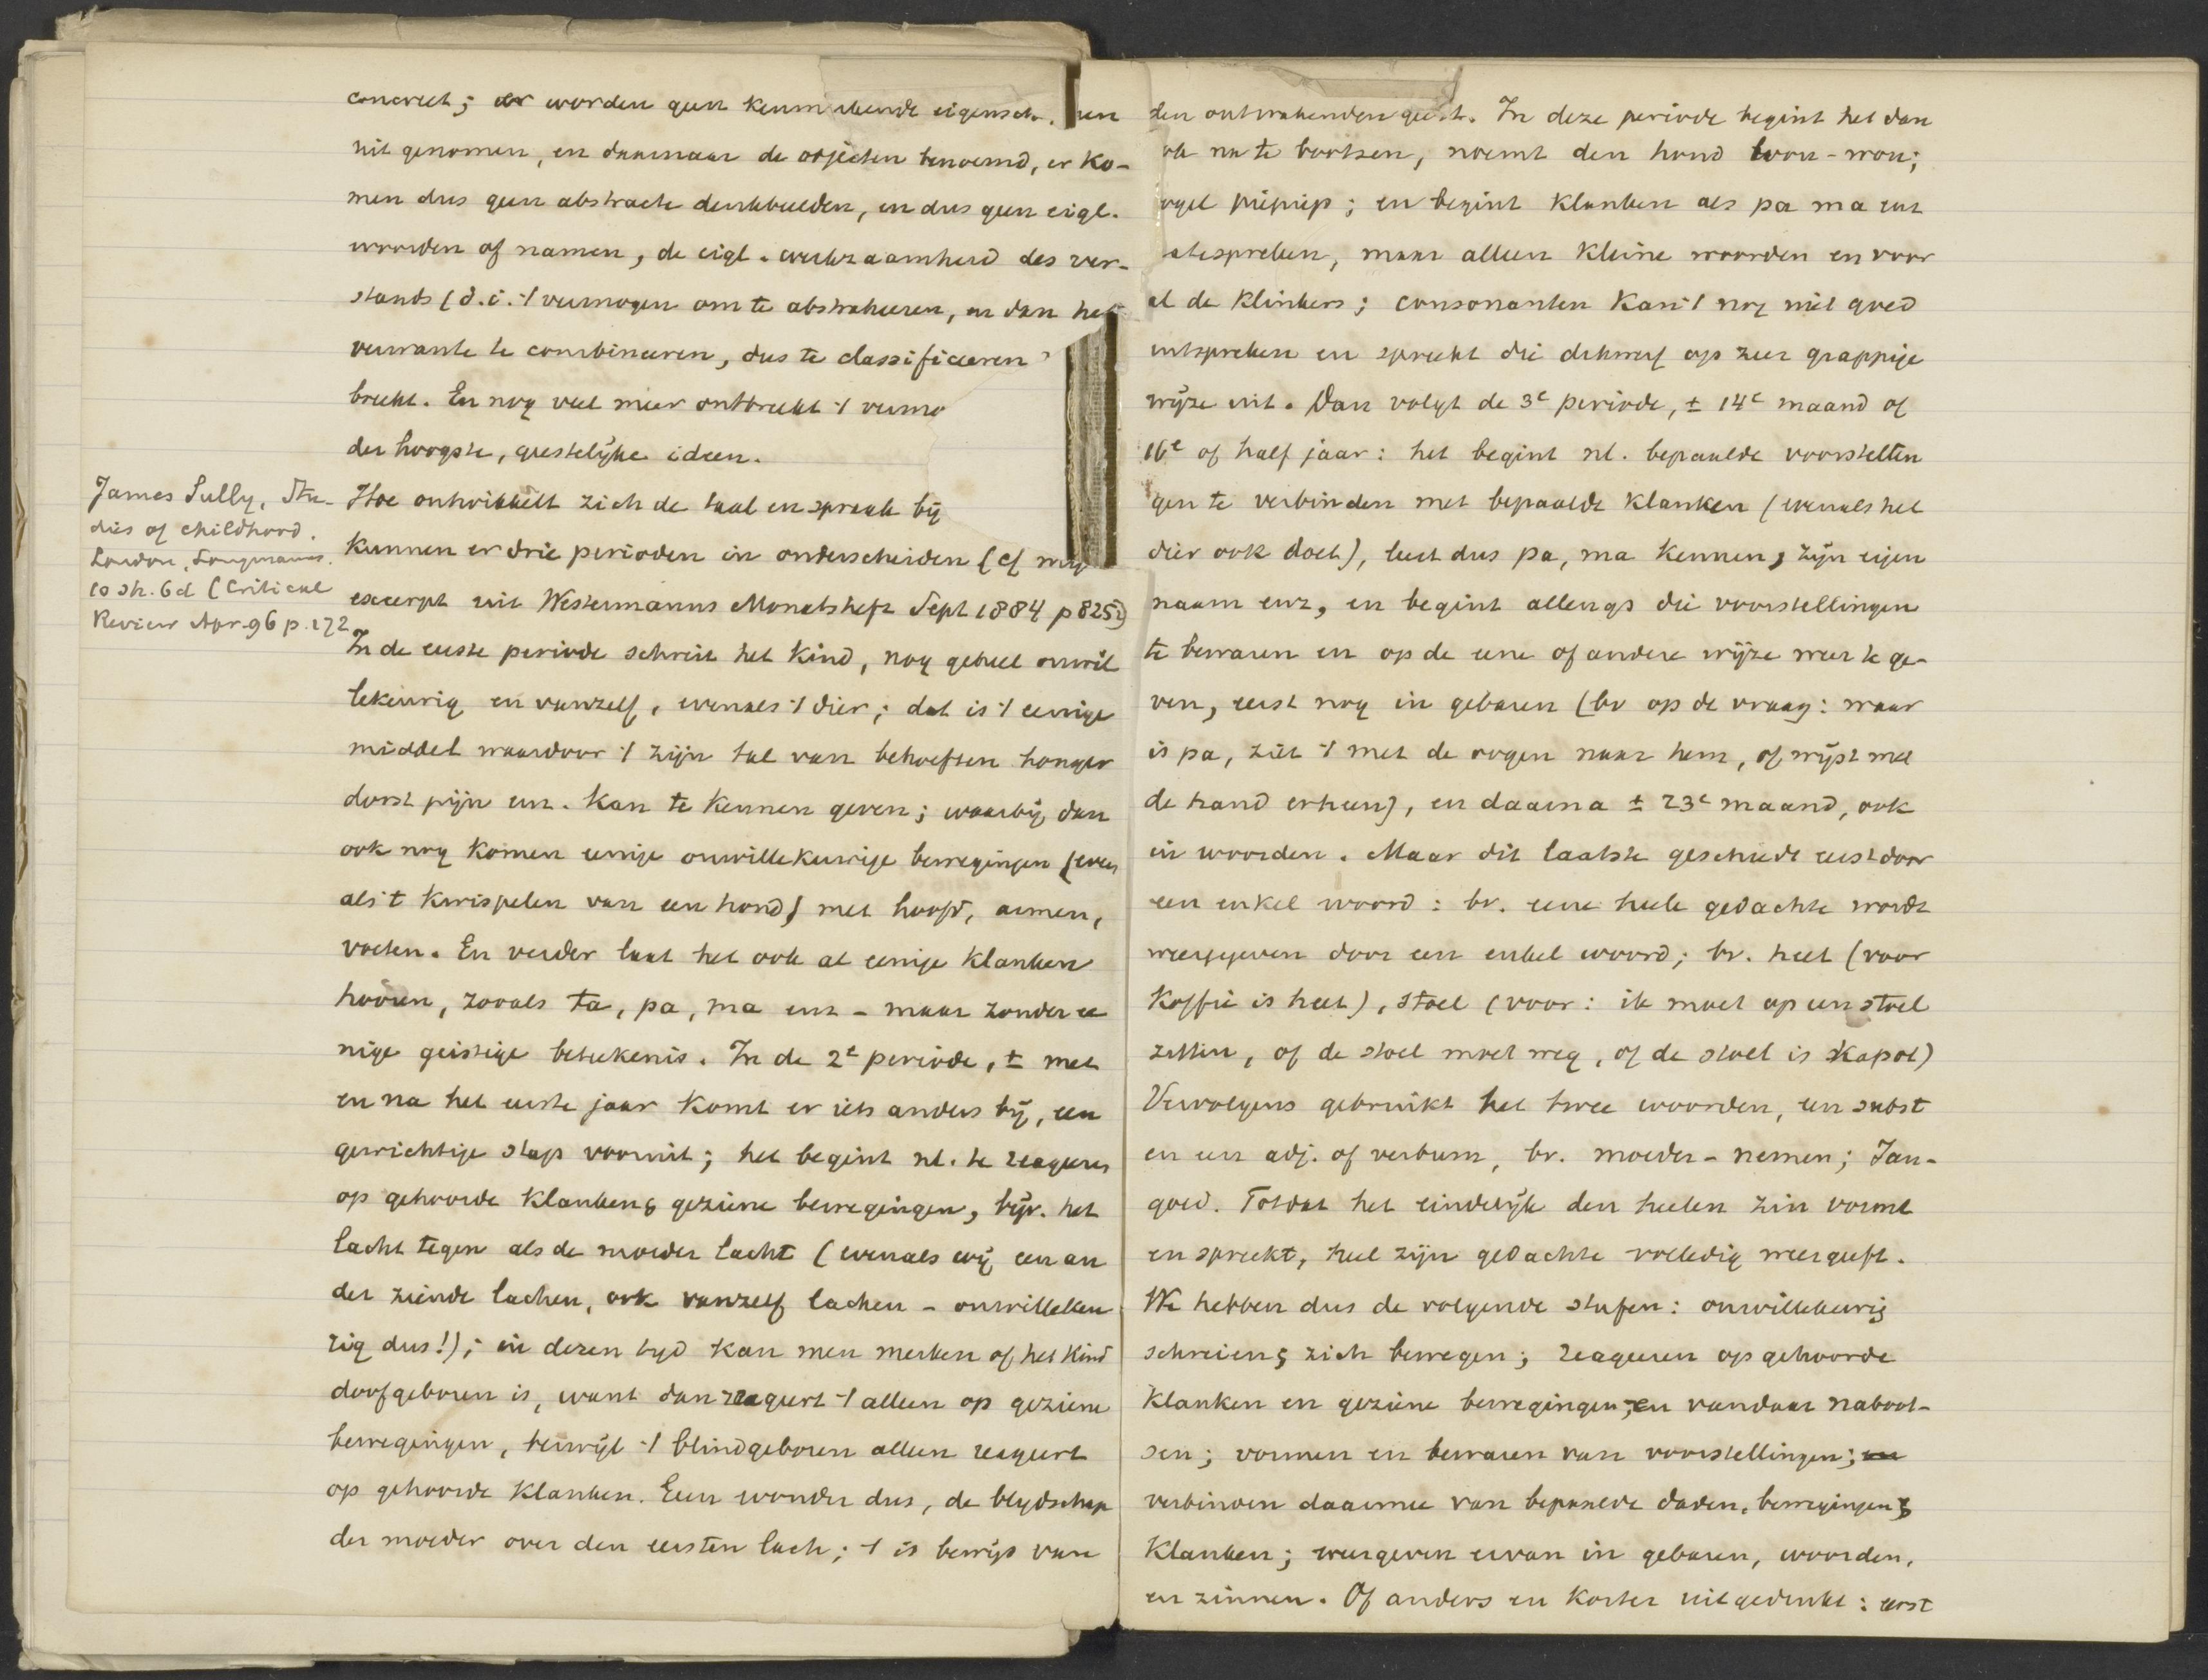 concreet; er worden geen kenmerkende eigensch. en
uit genomen, en daarnaar de objecten benoemd, er ko-
men dus geen abstracte denkbeelden, en dus geen eigl.
woorden of namen, de eigl. werkzaamheid des ver-
stands (d.i. 't vermogen om te abstraheeren, en dan het
verwante te combineeren, dus te classificeeren
breekt. En nog veel meer ontbreekt 't vermo
der hoogste, geestelijke ideen.
James Sully, Stu-
dies of childhood.
London, Longmanns.
10 sh. 6d (Critical
Review Apr. 96 p. 172
Hoe ontwikkelt zich de taal en spraak bij
kunnen er drie perioden in onderscheiden (cf mijn
excerpt uit Westermanns Monatshefte Sept 1884 p 825)
In de eerste periode schreit het kind, nog geheel onwil
lekeurig en vanzelf, evenals 't dier; dat is 't eenige
middel waardoor 't zijn tal van behoeften honger
dorst pijn enz. kan te kennen geven; waarbij dan
ook nog komen eenige onwillekeurige bewegingen (even
als 't kwispelen van een hond) met hoofd, armen,
voeten. En verder laat het ook al eenige klanken
hooren, zooals ta, pa, ma enz - maar zonder ee
nige geistige beteekenis. In de 2e periode, ± met
en na het eerste jaar komt er iets anders bij, een
gewichtige stap vooruit; het begint nl. te reageren
op gehoorde klanken & geziene bewegingen, bijv. het
lacht tegen als de moeder lacht (evenals wij een an
der ziende lachen, ook vanzelf lachen - onwillekeu
rig dus!); in dezen tijd kan men merken of het kind
doofgeboren is, want dan reageert 't alleen op geziene
bewegingen, terwijl 't blindgeboren alleen reageert
op gehoorde klanken. Geen wonder dus, de blijdschap
der moeder over den eersten lach; 't is bewijs van
den ontwakenden geest. In deze periode begint het dan
ook na te bootsen, noemt den hond wou-wou;
vogel piepiep; en begint klanken als pa ma enz
uitespreken, maar alleen kleine woorden en voor
al de klinkers; consonanten kan 't nog niet goed
uitspreken en spreekt die dikwerf op zeer grappige
wijze uit. Dan volgt de 3e periode, ± 14e maand of
16e of half jaar: het begint nl. bepaalde voorstellin
gen te verbinden met bepaalde klanken (evenals het
dier ook doet), leert dus pa, ma kennen, zijn eigen
naam enz, en begint allengs die voorstellingen
te bewaren en op de eene of andere wijze weer te ge-
ven, eerst nog in gebaren (bv op de vraag: waar
is pa, ziet 't met de oogen naar hem, of wijst met
de hand erheen), en daarna ± 23e maand, ook
in woorden. Maar dit laatste geschiedt eerst door
een enkel woord: bv. eene heele gedachte wordt
weergegeven door een enkel woord; bv. heet (voor
koffie is heet), stoel (voor: ik moet op een stoel
zitten, of de stoel moet weg, of de stoel is kapot)
Vervolgens gebruikt het twee woorden, een subst
en een adj. of verbum, bv. moeder-nemen; Jan-
goed. Totdat het eindelijk den heelen zin vormt
en spreekt, heel zijn gedachte volledig weergeeft.
We hebben dus de volgende stufen: onwillekeurig
schreien & zich bewegen; reageeren op gehoorde
klanken en geziene bewegingen; en vandaar naboot-
sen; vormen en bewaren van voorstellingen; en
verbinden daarmee van bepaalde daden, bewegingen &
klanken; weergeven ervan in gebaren, woorden,
en zinnen. Of anders en korter uitgedrukt: eerst